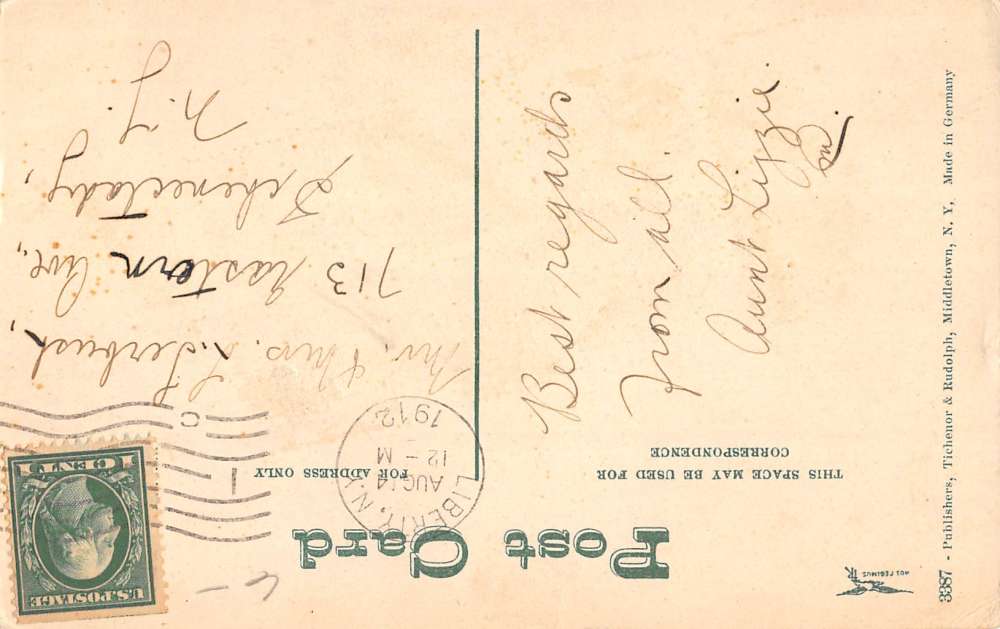 Post Card
THIS SPACE MAY BE USED FOR
CORRESPONDENCE
FOR ADDRESS ONLY
Best regards
from all.
Aunt Lizzie.
LIBERTY, N.Y.
AUG 14
12 - M
1912
C
1
U.S. POSTAGE
1 CENT 1
Mr. & Mrs.
713 Eastern Ave,
Schenectady,
N.Y.
3387 - Publishers, Tichenor & Rudolph, Middletown, N. Y. Made in Germany